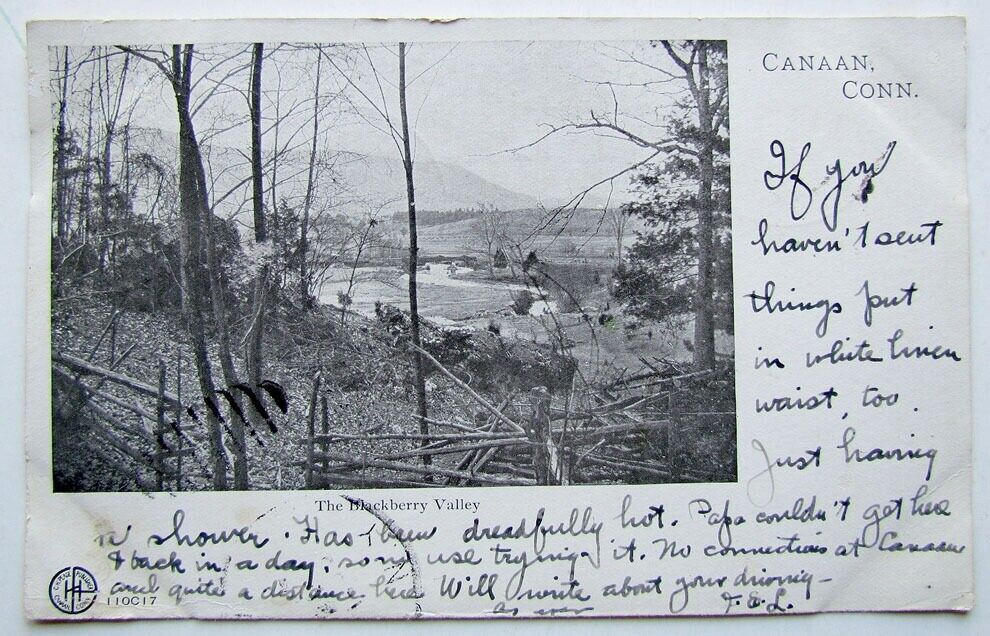 CANAAN,
CONN.
If you
haven't sent
things put
in white linen
waist, too.
Just having
a shower. Has been dreadfully hot. Papa couldn't get here
& back in a day, so no use trying it. No connections at Canaan
and quite a distance here Will write about your driving—
as ever
J. E. L.
The Blackberry Valley
CANAAN CONN.
110C17